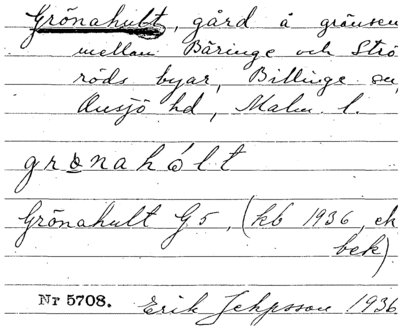 Grönahult, gård å gränsen
mellan Bäringe och Strö
röds byar, Billinge sn,
Onsjö hd, Malm. l.
grønahólt
Grönahult G5, (kb 1936, ek
bek)
Nr 5708. Erik Jeppsson 1936